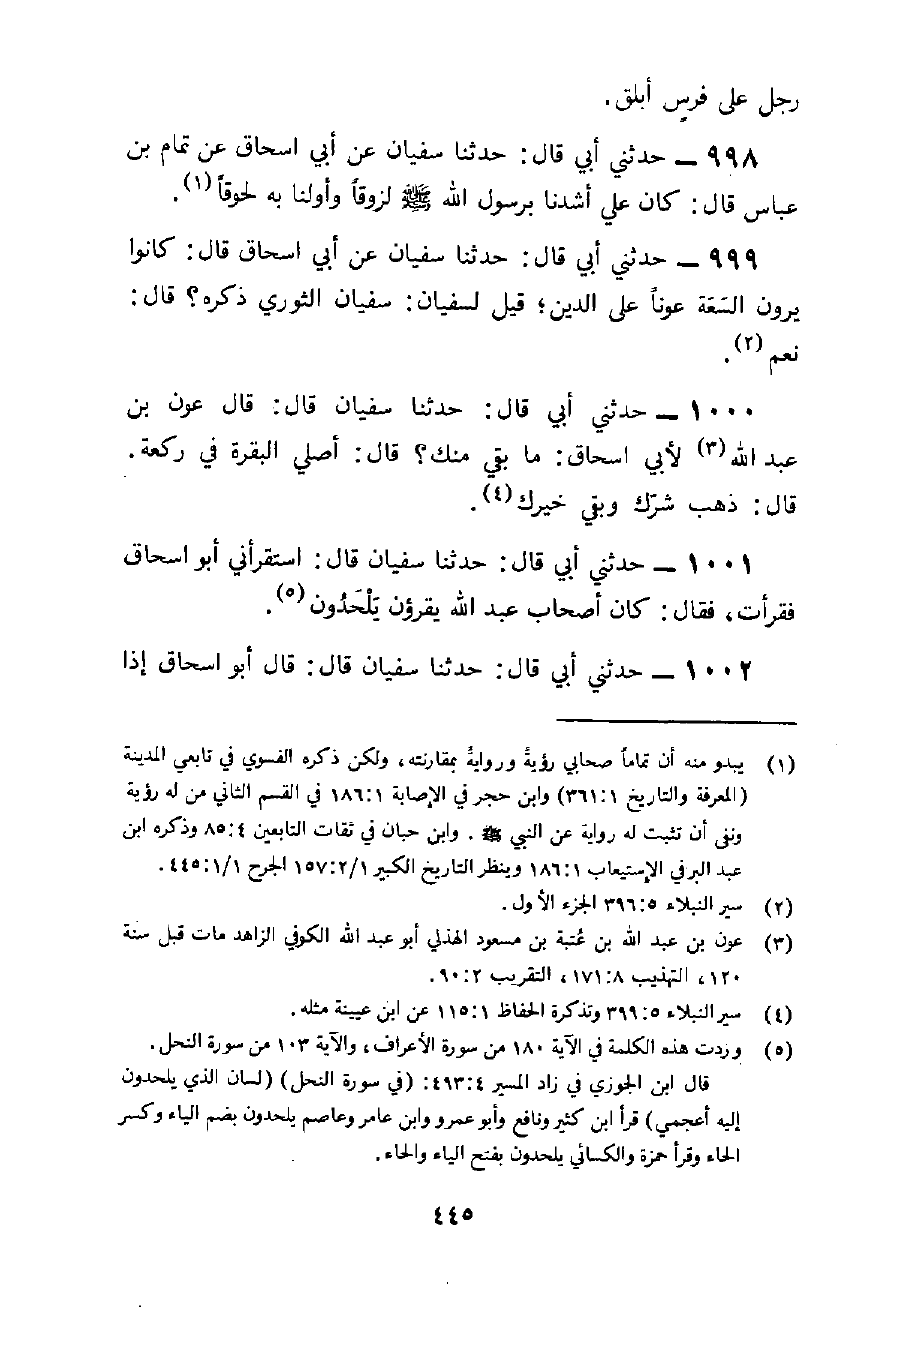 رجل على فرس أبلق.
٩٩٨ — حدثني أبي قال: حدثنا سفيان عن أبي اسحاق عن تمام بن
عباس قال: كان علي أشدنا برسول الله ﷺ لزوقاً وأولنا به لحوقاً(١).
٩٩٩ — حدثني أبي قال: حدثنا سفيان عن أبي اسحاق قال: كانوا
يرون السَّعَة عوناً على الدين؛ قيل لسفيان: سفيان الثوري ذكره؟ قال:
نعم(٢).
١٠٠٠ — حدثني أبي قال: حدثنا سفيان قال: قال عون بن
عبد الله(٣) لأبي اسحاق: ما بقي منك؟ قال: أصلي البقرة في ركعة.
قال: ذهب شرّك وبقي خيرك(٤).
١٠٠١ — حدثني أبي قال: حدثنا سفيان قال: استقرأني أبو اسحاق
فقرأت، فقال: كان أصحاب عبد الله يقرؤن يَلْحَدُون(٥).
١٠٠٢ — حدثني أبي قال: حدثنا سفيان قال: قال أبو اسحاق إذا
(١) يبدو منه أن تماماً صحابي رؤيةً وروايةً بمقارنته، ولكن ذكره الفسوي في تابعي المدينة
(المعرفة والتاريخ ٣٦١:١) وابن حجر في الإصابة ١٨٦:١ في القسم الثاني من له رؤية
ونفى أن تثبت له رواية عن النبي ﷺ. وابن حبان في ثقات التابعين ٨٥:٤ وذكره ابن
عبد البر في الإستيعاب ١٨٦:١ وينظر التاريخ الكبير ١٥٧:٢/١ الجرح ٤٤٥:١/١.
(٢) سير النبلاء ٣٩٦:٥ الجزء الأول.
(٣) عون بن عبد الله بن عُتبة بن مسعود الهذلي أبو عبد الله الكوفي الزاهد مات قبل سنة
١٢٠، التهذيب ١٧١:٨، التقريب ٩٠:٢.
(٤) سير النبلاء ٣٩٩:٥ وتذكرة الحفاظ ١١٥:١ عن ابن عيينة مثله.
(٥) وردت هذه الكلمة في الآية ١٨٠ من سورة الأعراف، والآية ١٠٣ من سورة النحل.
قال ابن الجوزي في زاد المسير ٤٩٣:٤: (في سورة النحل) (لسان الذي يلحدون
إليه أعجمي) قرأ ابن كثير ونافع وأبو عمرو وابن عامر وعاصم يلحدون بضم الياء وكسر
الحاء وقرأ حمزة والكسائي يلحدون بفتح الياء والحاء.
٤٤٥